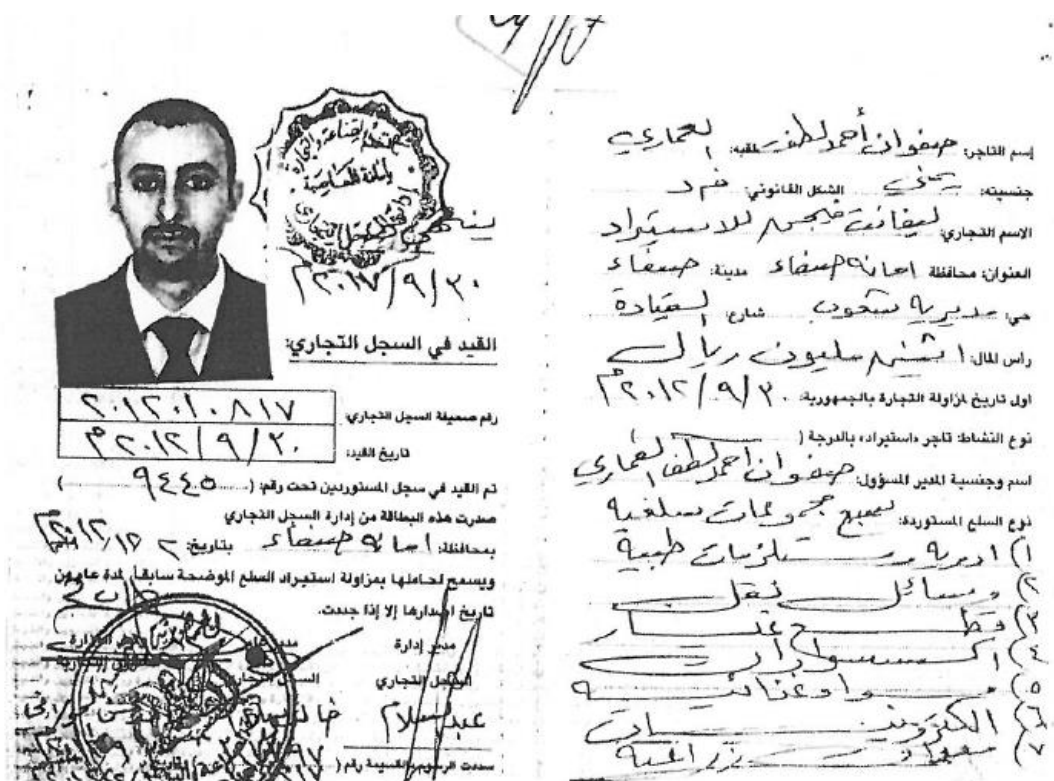 إسم التاجر: صفوان أحمد لطف لقبه: العماري
جنسيته: يمني الشكل القانوني: فرد
الاسم التجاري: ليفانت فيجن للاستيراد
العنوان: محافظة امانة صنعاء مدينة: صنعاء
حي: مديرية شعوب شارع: القيادة
راس المال: اثنين مليون ريال
اول تاريخ لمزاولة التجارة بالجمهورية: ٢٠١٢/٩/٣٠م
نوع النشاط: تاجر «استيراد» بالدرجة (
اسم وجنسية المدير المسؤول: صفوان احمد لطف العماري
نوع السلع المستوردة: سبع مجموعات سلعية
١) ادوية ومستلزمات طبية
٢) وسائل نقل
٣) قطع غيار
٤) اكسسوارات
٥) مواد غذائية
٦) الكترونيات
٧) زراعية
٢٠١٧/٩/٣٠م
القيد في السجل التجاري:
رقم صحيفة السجل التجاري: ٢٠١٢٠١٠٨١٧
تاريخ القيد: ٢٠١٢/٩/٣٠م
تم القيد في سجل المستوردين تحت رقم: (٩٤٤٥)
صدرت هذه البطاقة من إدارة السجل التجاري
بمحافظة: امانة صنعاء بتاريخ:
ويسمح لحاملها بمزاولة استيراد السلع الموضحة سابقاً لمدة عام من
تاريخ اصدارها إلا إذا جددت.
مدير إدارة
السجل التجاري السجل التجاري
عبدالسلام
سددت الرسوم بالقسيمة رقم (